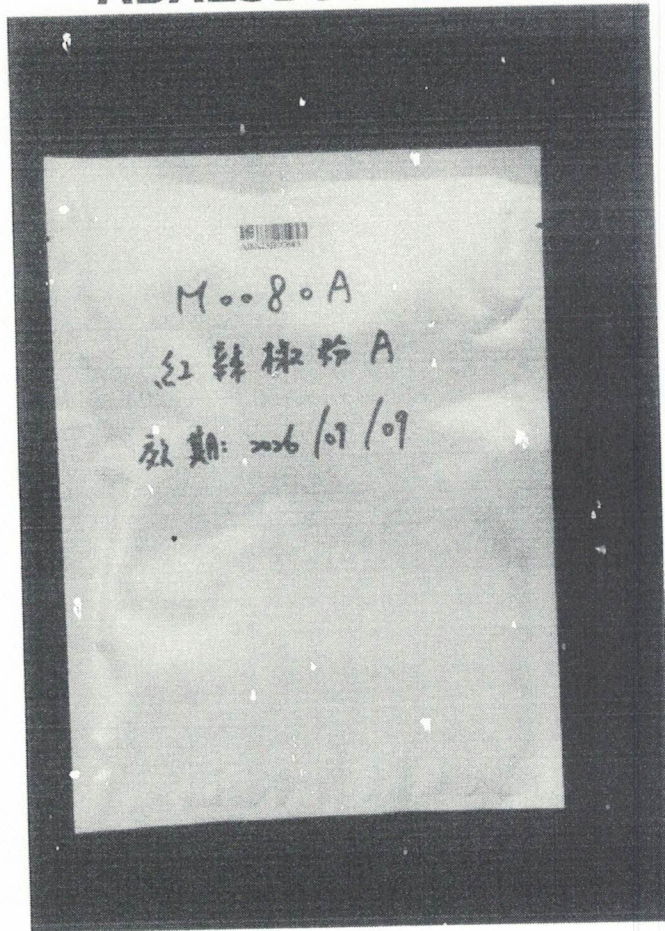 M0080A
紅辣椒粉A
效期: 2026/09/09